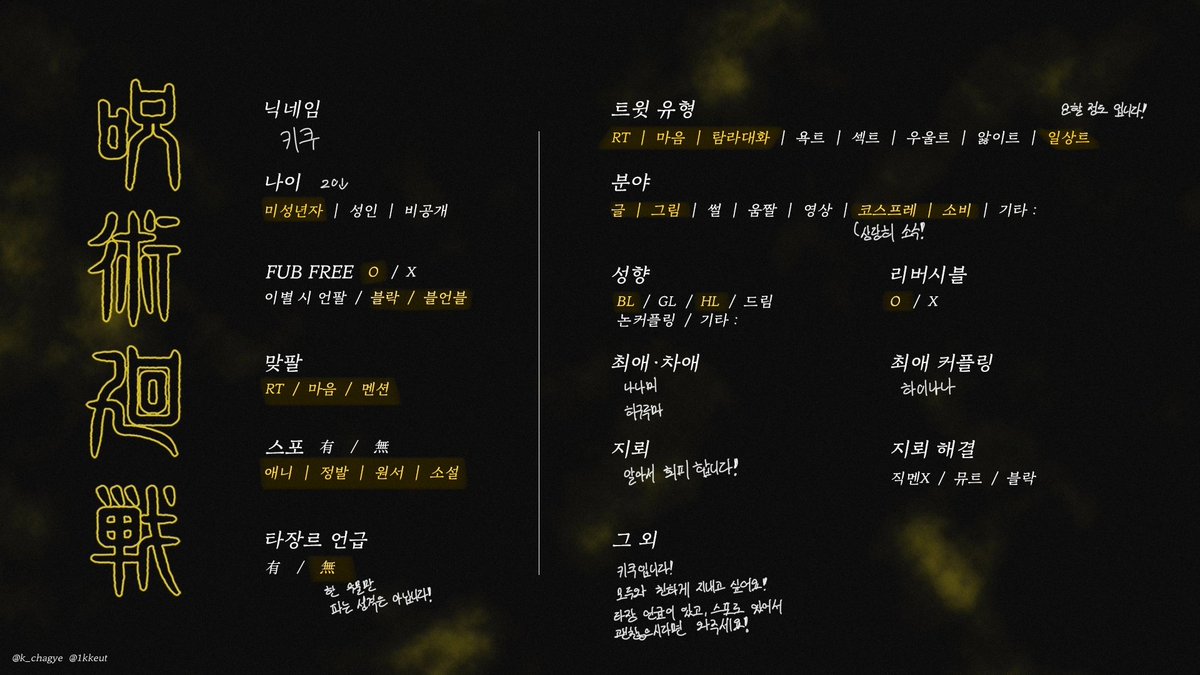 呪術廻戦
닉네임
키쿠
나이
미성년자 | 성인 | 비공개
FUB FREE O / X
이별 시 언팔 / 블락 / 블언블
맞팔
RT / 마음 / 멘션
스포 有 / 無
애니 | 정발 | 원서 | 소설
타장르 언급
有 / 無
한 우물만
파는 성격은 아닙니다!
트윗 유형
RT | 마음 | 탐라대화 | 욕트 | 섹트 | 우울트 | 앓이트 | 일상트
분야
글 | 그림 | 썰 | 움짤 | 영상 | 코스프레 | 소비 | 기타 :
소수!
성향
BL / GL / HL / 드림
논커플링 / 기타 :
리버시블
O / X
최애·차애
나나미
하구루마
최애 커플링
하이나나
지뢰
알아서 회피 합니다!
지뢰 해결
직멘X / 뮤트 / 블락
그 외
키쿠입니다!
모두와 친하게 지내고 싶어요!
타장 언급이 있고, 스포도 있어서
괜찮으시다면 와주세요!
@k_chagye @1kkeut